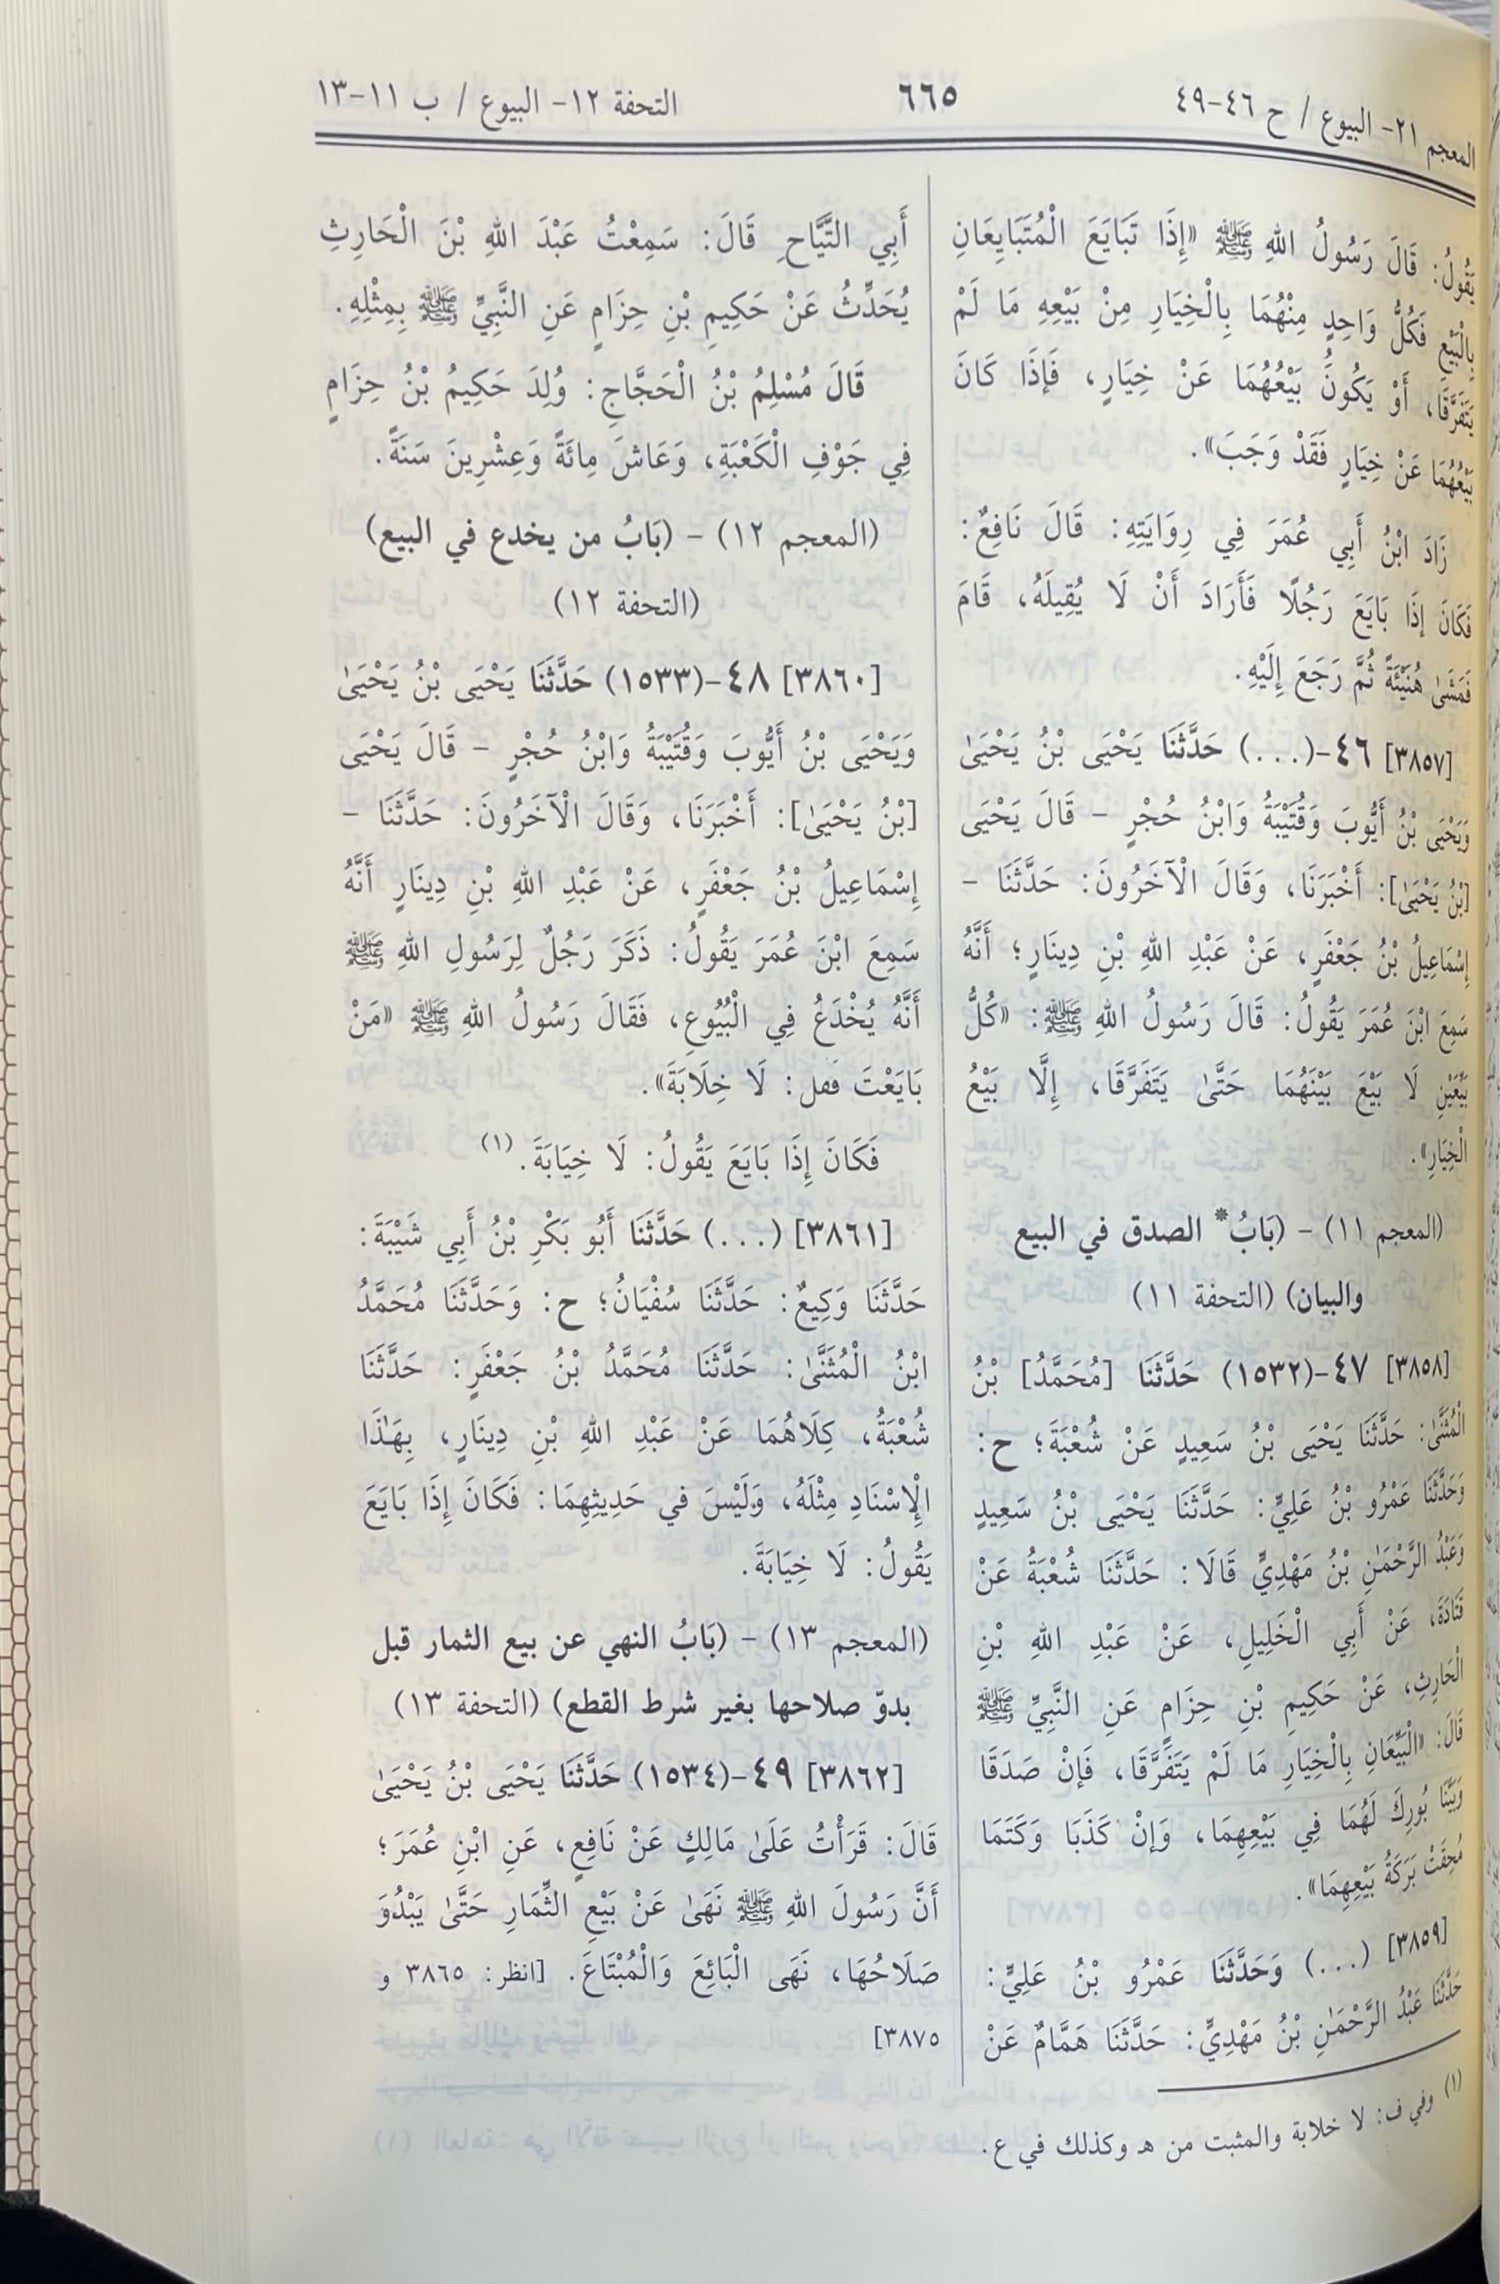 المعجم ٢١- البيوع / ح ٤٦-٤٩
٦٦٥
التحفة ١٢- البيوع / ب ١١-١٣
يَقُولُ: قَالَ رَسُولُ اللهِ ﷺ «إِذَا تَبَايَعَ الْمُتَبَايِعَانِ
بِالْبَيْعِ فَكُلُّ وَاحِدٍ مِنْهُمَا بِالْخِيَارِ مِنْ بَيْعِهِ مَا لَمْ
يَتَفَرَّقَا، أَوْ يَكُونُ بَيْعُهُمَا عَنْ خِيَارٍ، فَإِذَا كَانَ
بَيْعُهُمَا عَنْ خِيَارٍ فَقَدْ وَجَبَ».
زَادَ ابْنُ أَبِي عُمَرَ فِي رِوَايَتِهِ: قَالَ نَافِعٌ:
فَكَانَ إِذَا بَايَعَ رَجُلًا فَأَرَادَ أَنْ لَا يُقِيلَهُ، قَامَ
فَمَشَىٰ هُنَيْئَةً ثُمَّ رَجَعَ إِلَيْهِ.
[٣٨٥٧] ٤٦-(...) حَدَّثَنَا يَحْيَى بْنُ يَحْيَىٰ
وَيَحْيَى بْنُ أَيُّوبَ وَقُتَيْبَةُ وَابْنُ حُجْرٍ - قَالَ يَحْيَى
[بْنُ يَحْيَىٰ]: أَخْبَرَنَا، وَقَالَ الْآخَرُونَ: حَدَّثَنَا -
إِسْمَاعِيلُ بْنُ جَعْفَرٍ، عَنْ عَبْدِ اللهِ بْنِ دِينَارٍ؛ أَنَّهُ
سَمِعَ ابْنَ عُمَرَ يَقُولُ: قَالَ رَسُولُ اللهِ ﷺ: «كُلُّ
بَيِّعَيْنِ لَا بَيْعَ بَيْنَهُمَا حَتَّىٰ يَتَفَرَّقَا، إِلَّا بَيْعُ
الْخِيَارِ».
(المعجم ١١) - (بَابُ* الصدق في البيع
والبيان) (التحفة ١١)
[٣٨٥٨] ٤٧-(١٥٣٢) حَدَّثَنَا [مُحَمَّدُ] بْنُ
الْمُثَنَّىٰ: حَدَّثَنَا يَحْيَى بْنُ سَعِيدٍ عَنْ شُعْبَةَ؛ ح:
وَحَدَّثَنَا عَمْرُو بْنُ عَلِيٍّ: حَدَّثَنَا يَحْيَى بْنُ سَعِيدٍ
وَعَبْدُ الرَّحْمَٰنِ بْنُ مَهْدِيٍّ قَالَا: حَدَّثَنَا شُعْبَةُ عَنْ
قَتَادَةَ، عَنْ أَبِي الْخَلِيلِ، عَنْ عَبْدِ اللهِ بْنِ
الْحَارِثِ، عَنْ حَكِيمِ بْنِ حِزَامٍ عَنِ النَّبِيِّ ﷺ
قَالَ: «الْبَيِّعَانِ بِالْخِيَارِ مَا لَمْ يَتَفَرَّقَا، فَإِنْ صَدَقَا
وَبَيَّنَا بُورِكَ لَهُمَا فِي بَيْعِهِمَا، وَإِنْ كَذَبَا وَكَتَمَا
مُحِقَتْ بَرَكَةُ بَيْعِهِمَا».
[٣٨٥٩] (...) وَحَدَّثَنَا عَمْرُو بْنُ عَلِيٍّ:
حَدَّثَنَا عَبْدُ الرَّحْمَٰنِ بْنُ مَهْدِيٍّ: حَدَّثَنَا هَمَّامٌ عَنْ
أَبِي التَّيَّاحِ قَالَ: سَمِعْتُ عَبْدَ اللهِ بْنَ الْحَارِثِ
يُحَدِّثُ عَنْ حَكِيمِ بْنِ حِزَامٍ عَنِ النَّبِيِّ ﷺ بِمِثْلِهِ.
قَالَ مُسْلِمُ بْنُ الْحَجَّاجِ: وُلِدَ حَكِيمُ بْنُ حِزَامٍ
فِي جَوْفِ الْكَعْبَةِ، وَعَاشَ مِائَةً وَعِشْرِينَ سَنَةً.
(المعجم ١٢) - (بَابُ من يخدع في البيع)
(التحفة ١٢)
[٣٨٦٠] ٤٨-(١٥٣٣) حَدَّثَنَا يَحْيَى بْنُ يَحْيَىٰ
وَيَحْيَى بْنُ أَيُّوبَ وَقُتَيْبَةُ وَابْنُ حُجْرٍ - قَالَ يَحْيَى
[بْنُ يَحْيَىٰ]: أَخْبَرَنَا، وَقَالَ الْآخَرُونَ: حَدَّثَنَا -
إِسْمَاعِيلُ بْنُ جَعْفَرٍ، عَنْ عَبْدِ اللهِ بْنِ دِينَارٍ أَنَّهُ
سَمِعَ ابْنَ عُمَرَ يَقُولُ: ذَكَرَ رَجُلٌ لِرَسُولِ اللهِ ﷺ
أَنَّهُ يُخْدَعُ فِي الْبُيُوعِ، فَقَالَ رَسُولُ اللهِ ﷺ «مَنْ
بَايَعْتَ فقل: لَا خِلَابَةَ».
فَكَانَ إِذَا بَايَعَ يَقُولُ: لَا خِيَابَةَ.(١)
[٣٨٦١] (...) حَدَّثَنَا أَبُو بَكْرِ بْنُ أَبِي شَيْبَةَ:
حَدَّثَنَا وَكِيعٌ: حَدَّثَنَا سُفْيَانُ؛ ح: وَحَدَّثَنَا مُحَمَّدُ
ابْنُ الْمُثَنَّىٰ: حَدَّثَنَا مُحَمَّدُ بْنُ جَعْفَرٍ: حَدَّثَنَا
شُعْبَةُ، كِلَاهُمَا عَنْ عَبْدِ اللهِ بْنِ دِينَارٍ، بِهَٰذَا
الْإِسْنَادِ مِثْلَهُ، وَلَيْسَ في حَدِيثِهِمَا: فَكَانَ إِذَا بَايَعَ
يَقُولُ: لَا خِيَابَةَ.
(المعجم ١٣) - (بَابُ النهي عن بيع الثمار قبل
بدوّ صلاحها بغير شرط القطع) (التحفة ١٣)
[٣٨٦٢] ٤٩-(١٥٣٤) حَدَّثَنَا يَحْيَى بْنُ يَحْيَىٰ
قَالَ: قَرَأْتُ عَلَىٰ مَالِكٍ عَنْ نَافِعٍ، عَنِ ابْنِ عُمَرَ؛
أَنَّ رَسُولَ اللهِ ﷺ نَهَىٰ عَنْ بَيْعِ الثِّمَارِ حَتَّىٰ يَبْدُوَ
صَلَاحُهَا، نَهَى الْبَائِعَ وَالْمُبْتَاعَ. [انظر: ٣٨٦٥ و
٣٨٧٥]
(١) وفي ف: لا خلابة والمثبت من هـ وكذلك في ع.